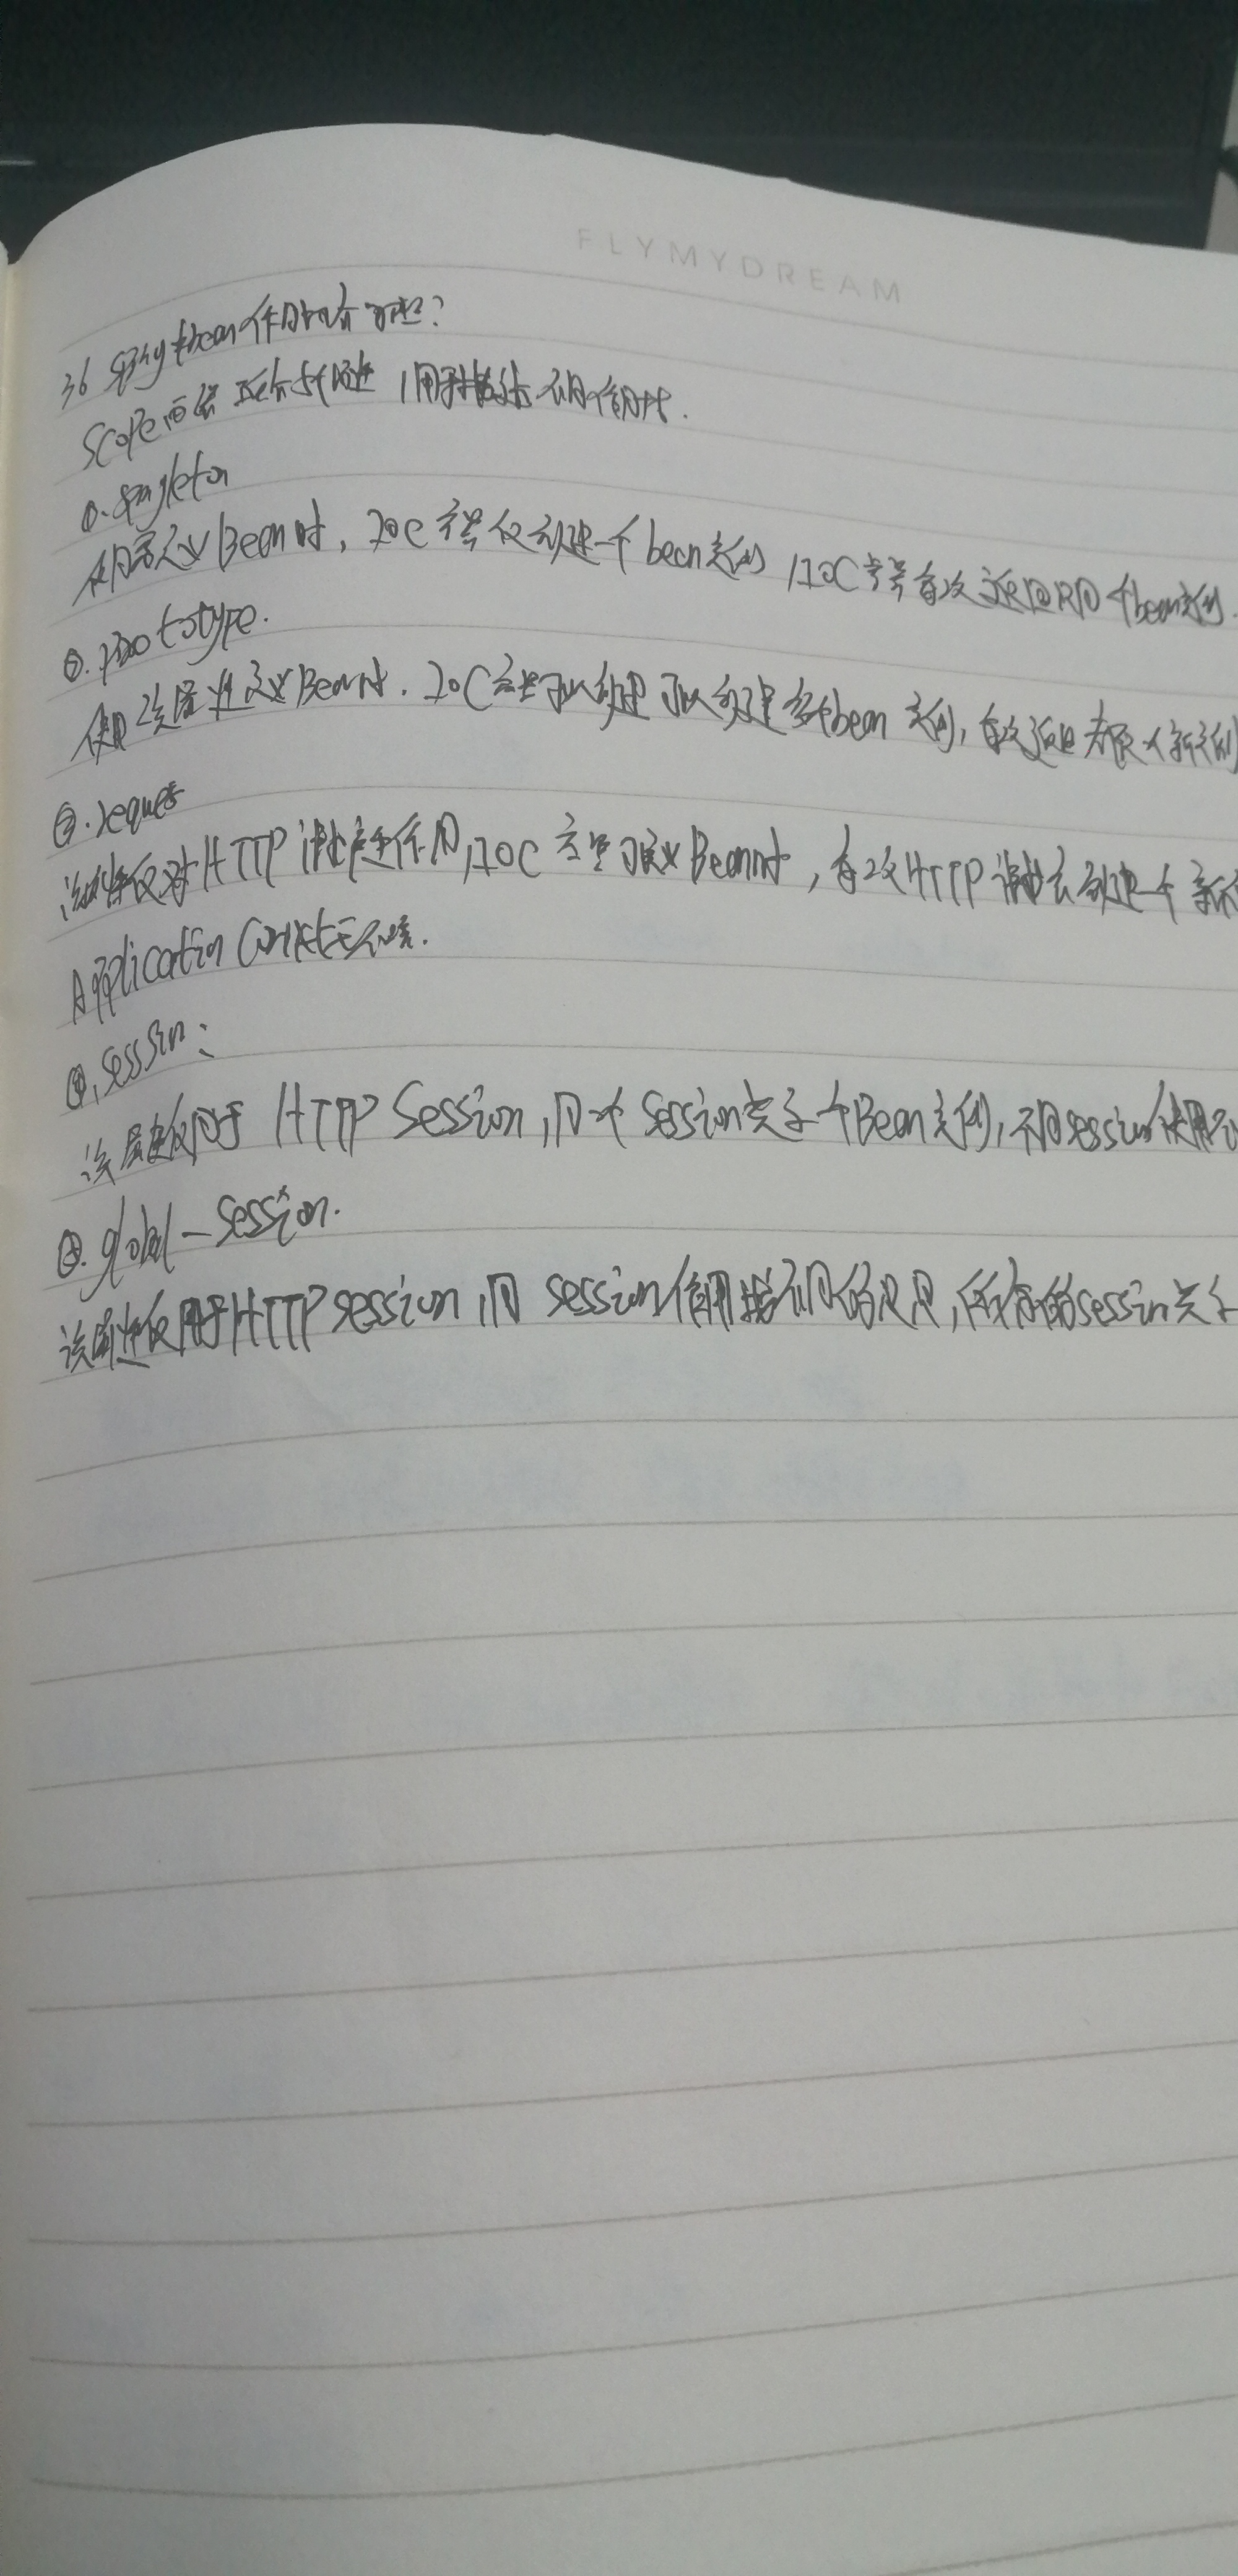 FLYMYDREAM
36 Spring 中 bean 作用域有哪些?
Scope 五个属性,用于描述不同作用域.
①. singleton
使用 定义 Bean 时, IOC 容器仅创建一个 bean 实例, IOC 容器每次返回同个 bean 实例.
②. prototype.
使用该属性定义 Bean 时. IOC 容器可以创建 可以创建多个 bean 实例, 每次返回都是个新实例
③. request
该属性仅对 HTTP 请求产生作用, IOC 容器 定义 Bean 时, 每次 HTTP 请求会创建一个新
Application Context 环境.
④. session:
该属性仅用于 HTTP Session, 同个 Session 共享个 Bean 实例, 不同 session 使用不
⑤. global-session.
该属性仅用于 HTTP session, 同 session 作用域不同的是, 所有的 session 共享